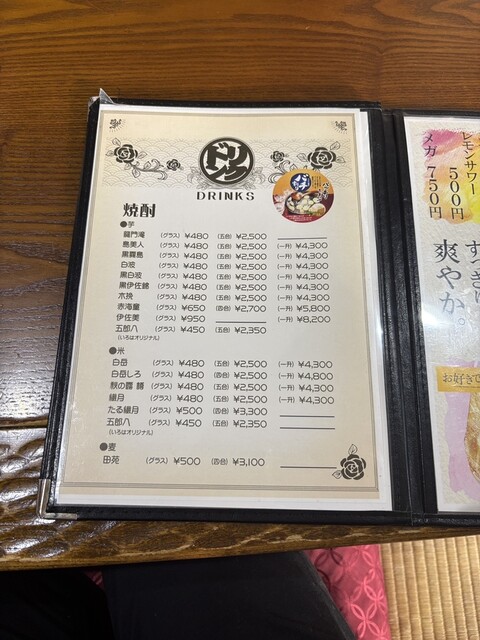 ドリンク
DRINKS
焼酎
●芋
龍門滝 (グラス) ¥480 (五合) ¥2,500
島美人 (グラス) ¥480 (五合) ¥2,500 (一升) ¥4,300
黒霧島 (グラス) ¥480 (五合) ¥2,500 (一升) ¥4,300
白波 (グラス) ¥480 (五合) ¥2,500 (一升) ¥4,300
黒白波 (グラス) ¥480 (五合) ¥2,500 (一升) ¥4,300
黒伊佐錦 (グラス) ¥480 (五合) ¥2,500 (一升) ¥4,300
木挽 (グラス) ¥480 (五合) ¥2,500 (一升) ¥4,300
赤海童 (グラス) ¥650 (四合) ¥2,700 (一升) ¥5,800
伊佐美 (グラス) ¥950 (一升) ¥8,200
五郎八 (グラス) ¥450 (五合) ¥2,350
(いろはオリジナル)
●米
白岳 (グラス) ¥480 (五合) ¥2,500 (一升) ¥4,300
白岳しろ (グラス) ¥480 (四合) ¥2,500 (一升) ¥4,300
秋の露 (グラス) ¥480 (五合) ¥2,500 (一升) ¥4,300
繊月 (グラス) ¥480 (五合) ¥2,500 (一升) ¥4,300
たる繊月 (グラス) ¥500 (四合) ¥3,300
五郎八 (グラス) ¥450 (五合) ¥2,350
(いろはオリジナル)
●麦
田苑 (グラス) ¥500 (四合) ¥3,100
レモンサワー 500円
メガ 750円
爽やか。
お好きで